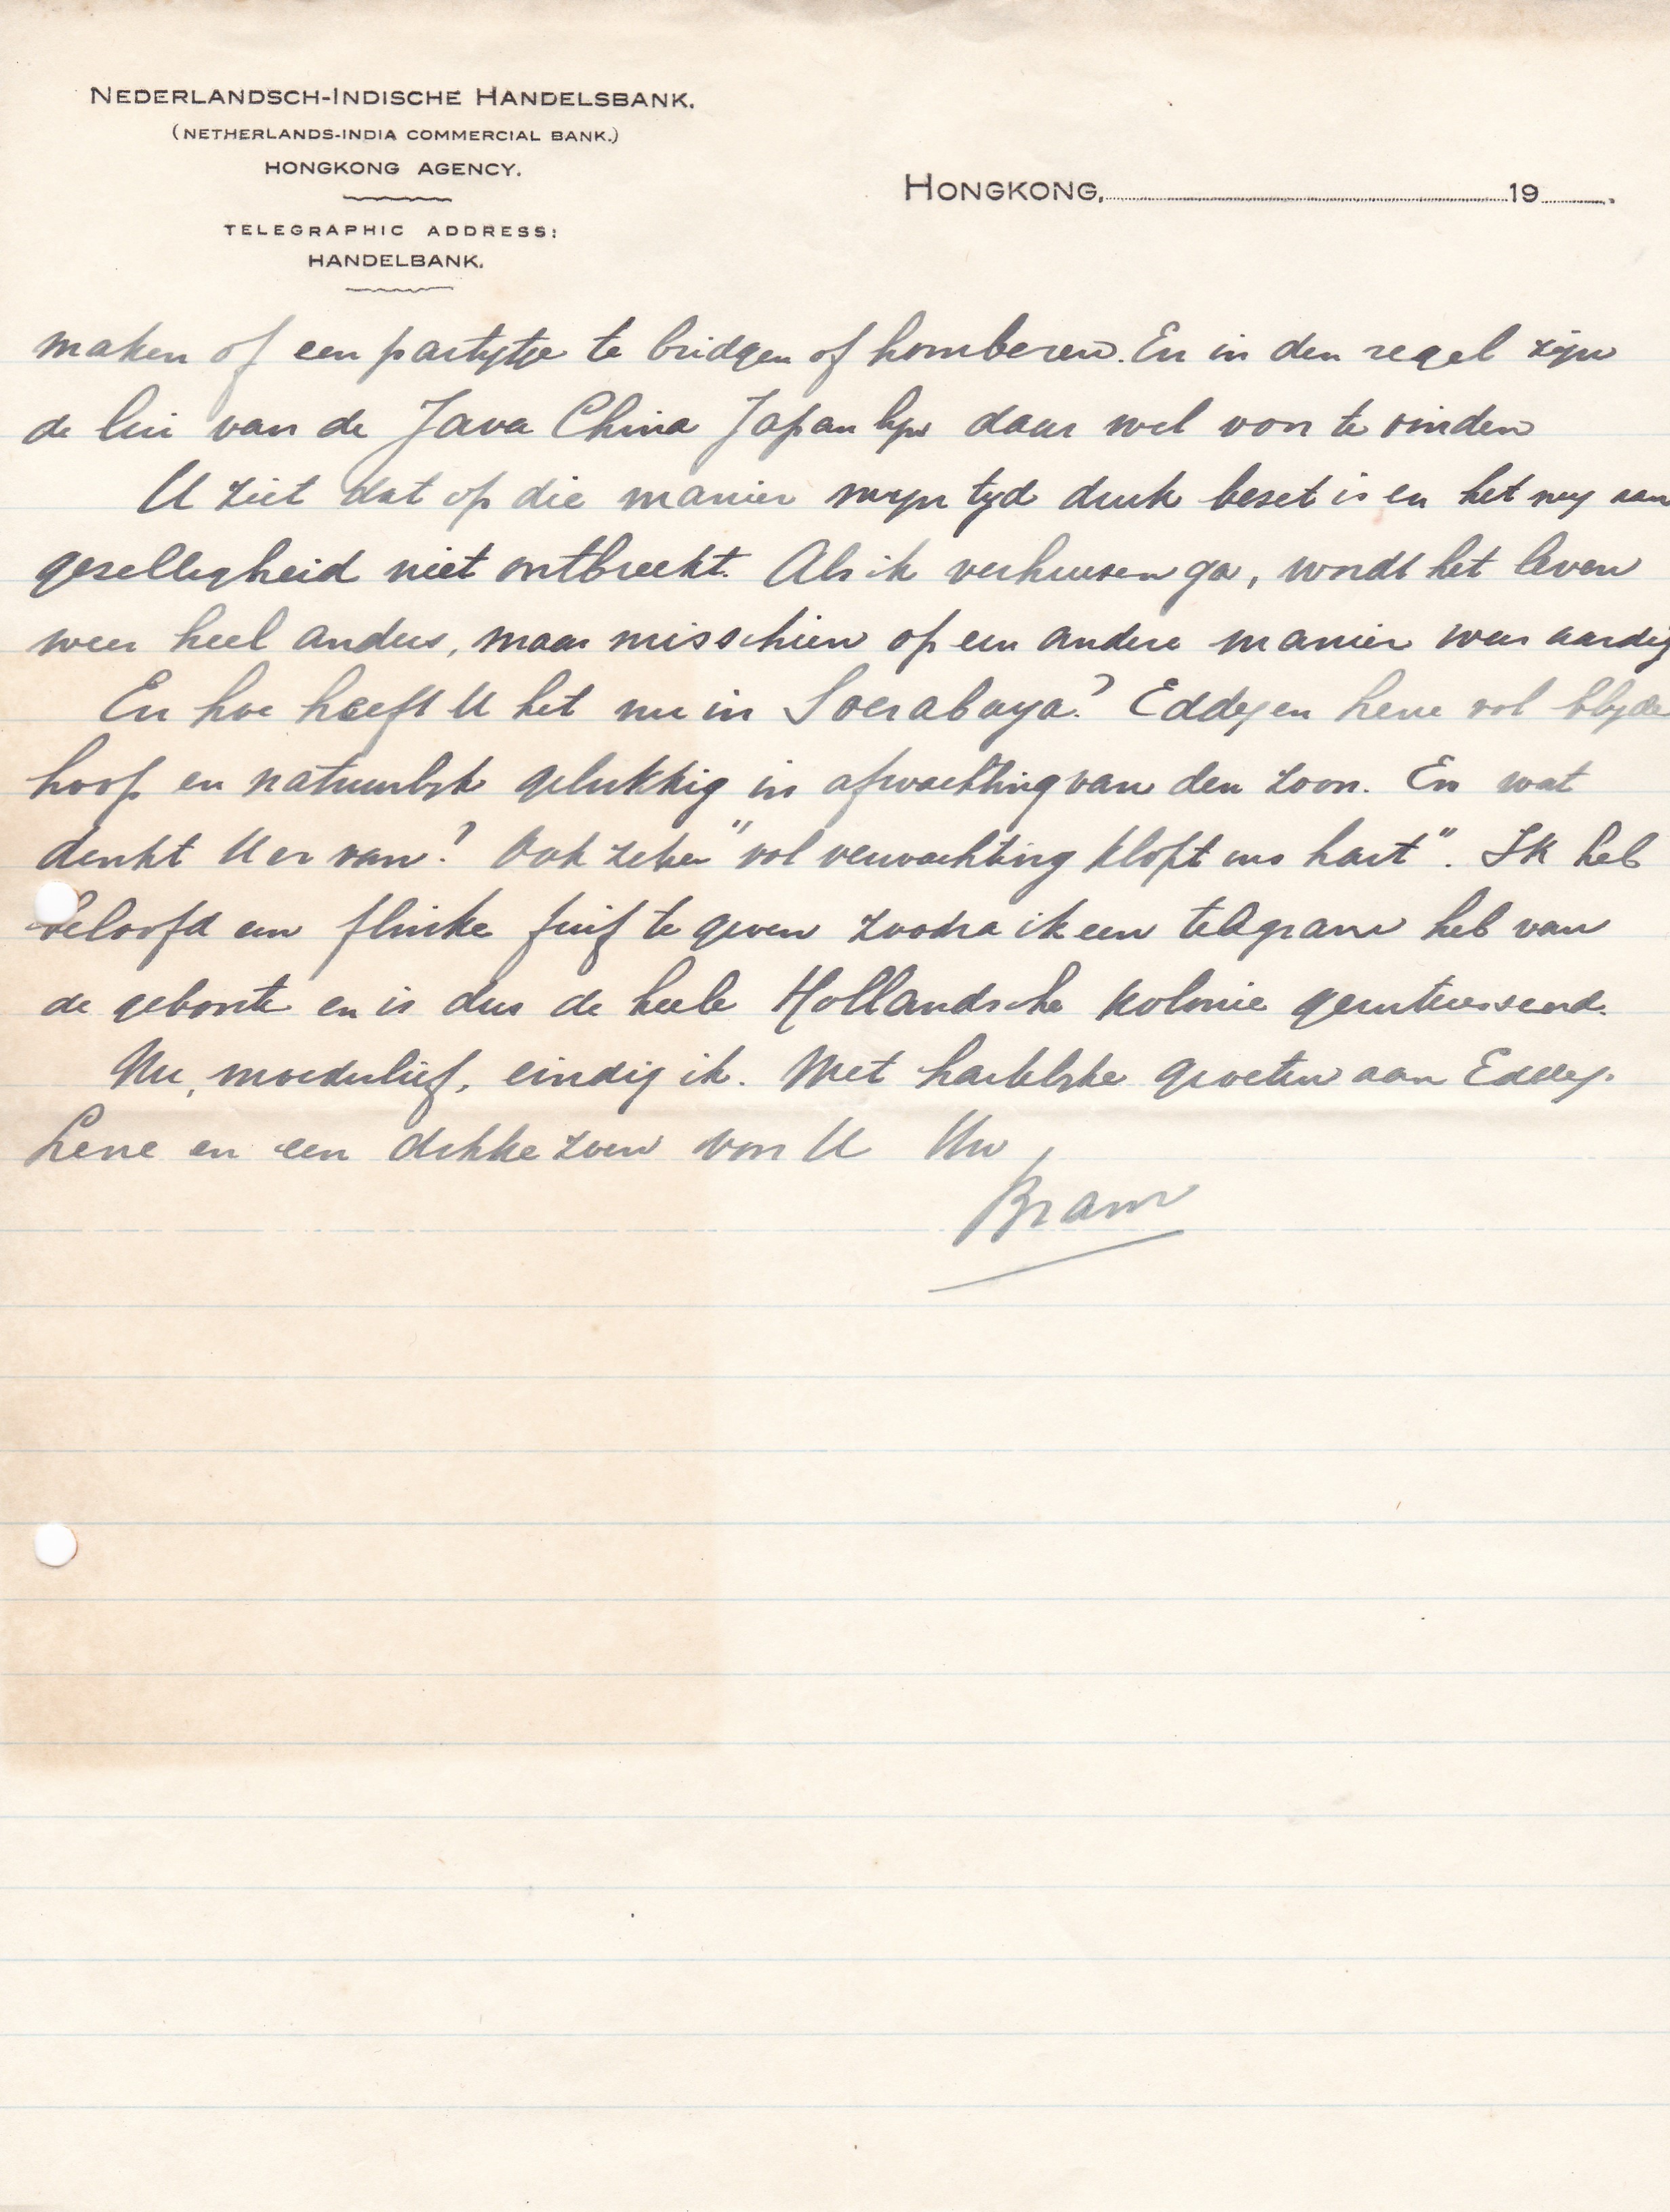 NEDERLANDSCH-INDISCHE HANDELSBANK.
(NETHERLANDS-INDIA COMMERCIAL BANK.)
HONGKONG AGENCY.
TELEGRAPHIC ADDRESS:
HANDELBANK.
HONGKONG, 19 .
maken of een partytje te bridgen of homberen. En in den regel zijn
de lui van de Java China Japan lijn daar wel voor te vinden
U ziet dat op die manier mijn tyd druk bezet is en het my aan
gezelligheid niet ontbreekt. Als ik verhuizen ga, wordt het leven
weer heel anders, maar misschien op een andere manier weer aardig
En hoe heeft U het nu in Soerabaya? Eddy en Lene vol blyde
hoop en natuurlyk gelukkig in afwachting van den zoon. En wat
denkt U er van? Ook zeker "vol verwachting klopt ons hart". Ik heb
beloofd een flinke fuif te geven zoodra ik een telegram heb van
de geboorte en is dus de heele Hollandsche kolonie geinteresseerd.
Nu, moederlief, eindig ik. Met hartelyke groeten aan Eddy.
Lene en een dikke zoen voor U Uw
Bram